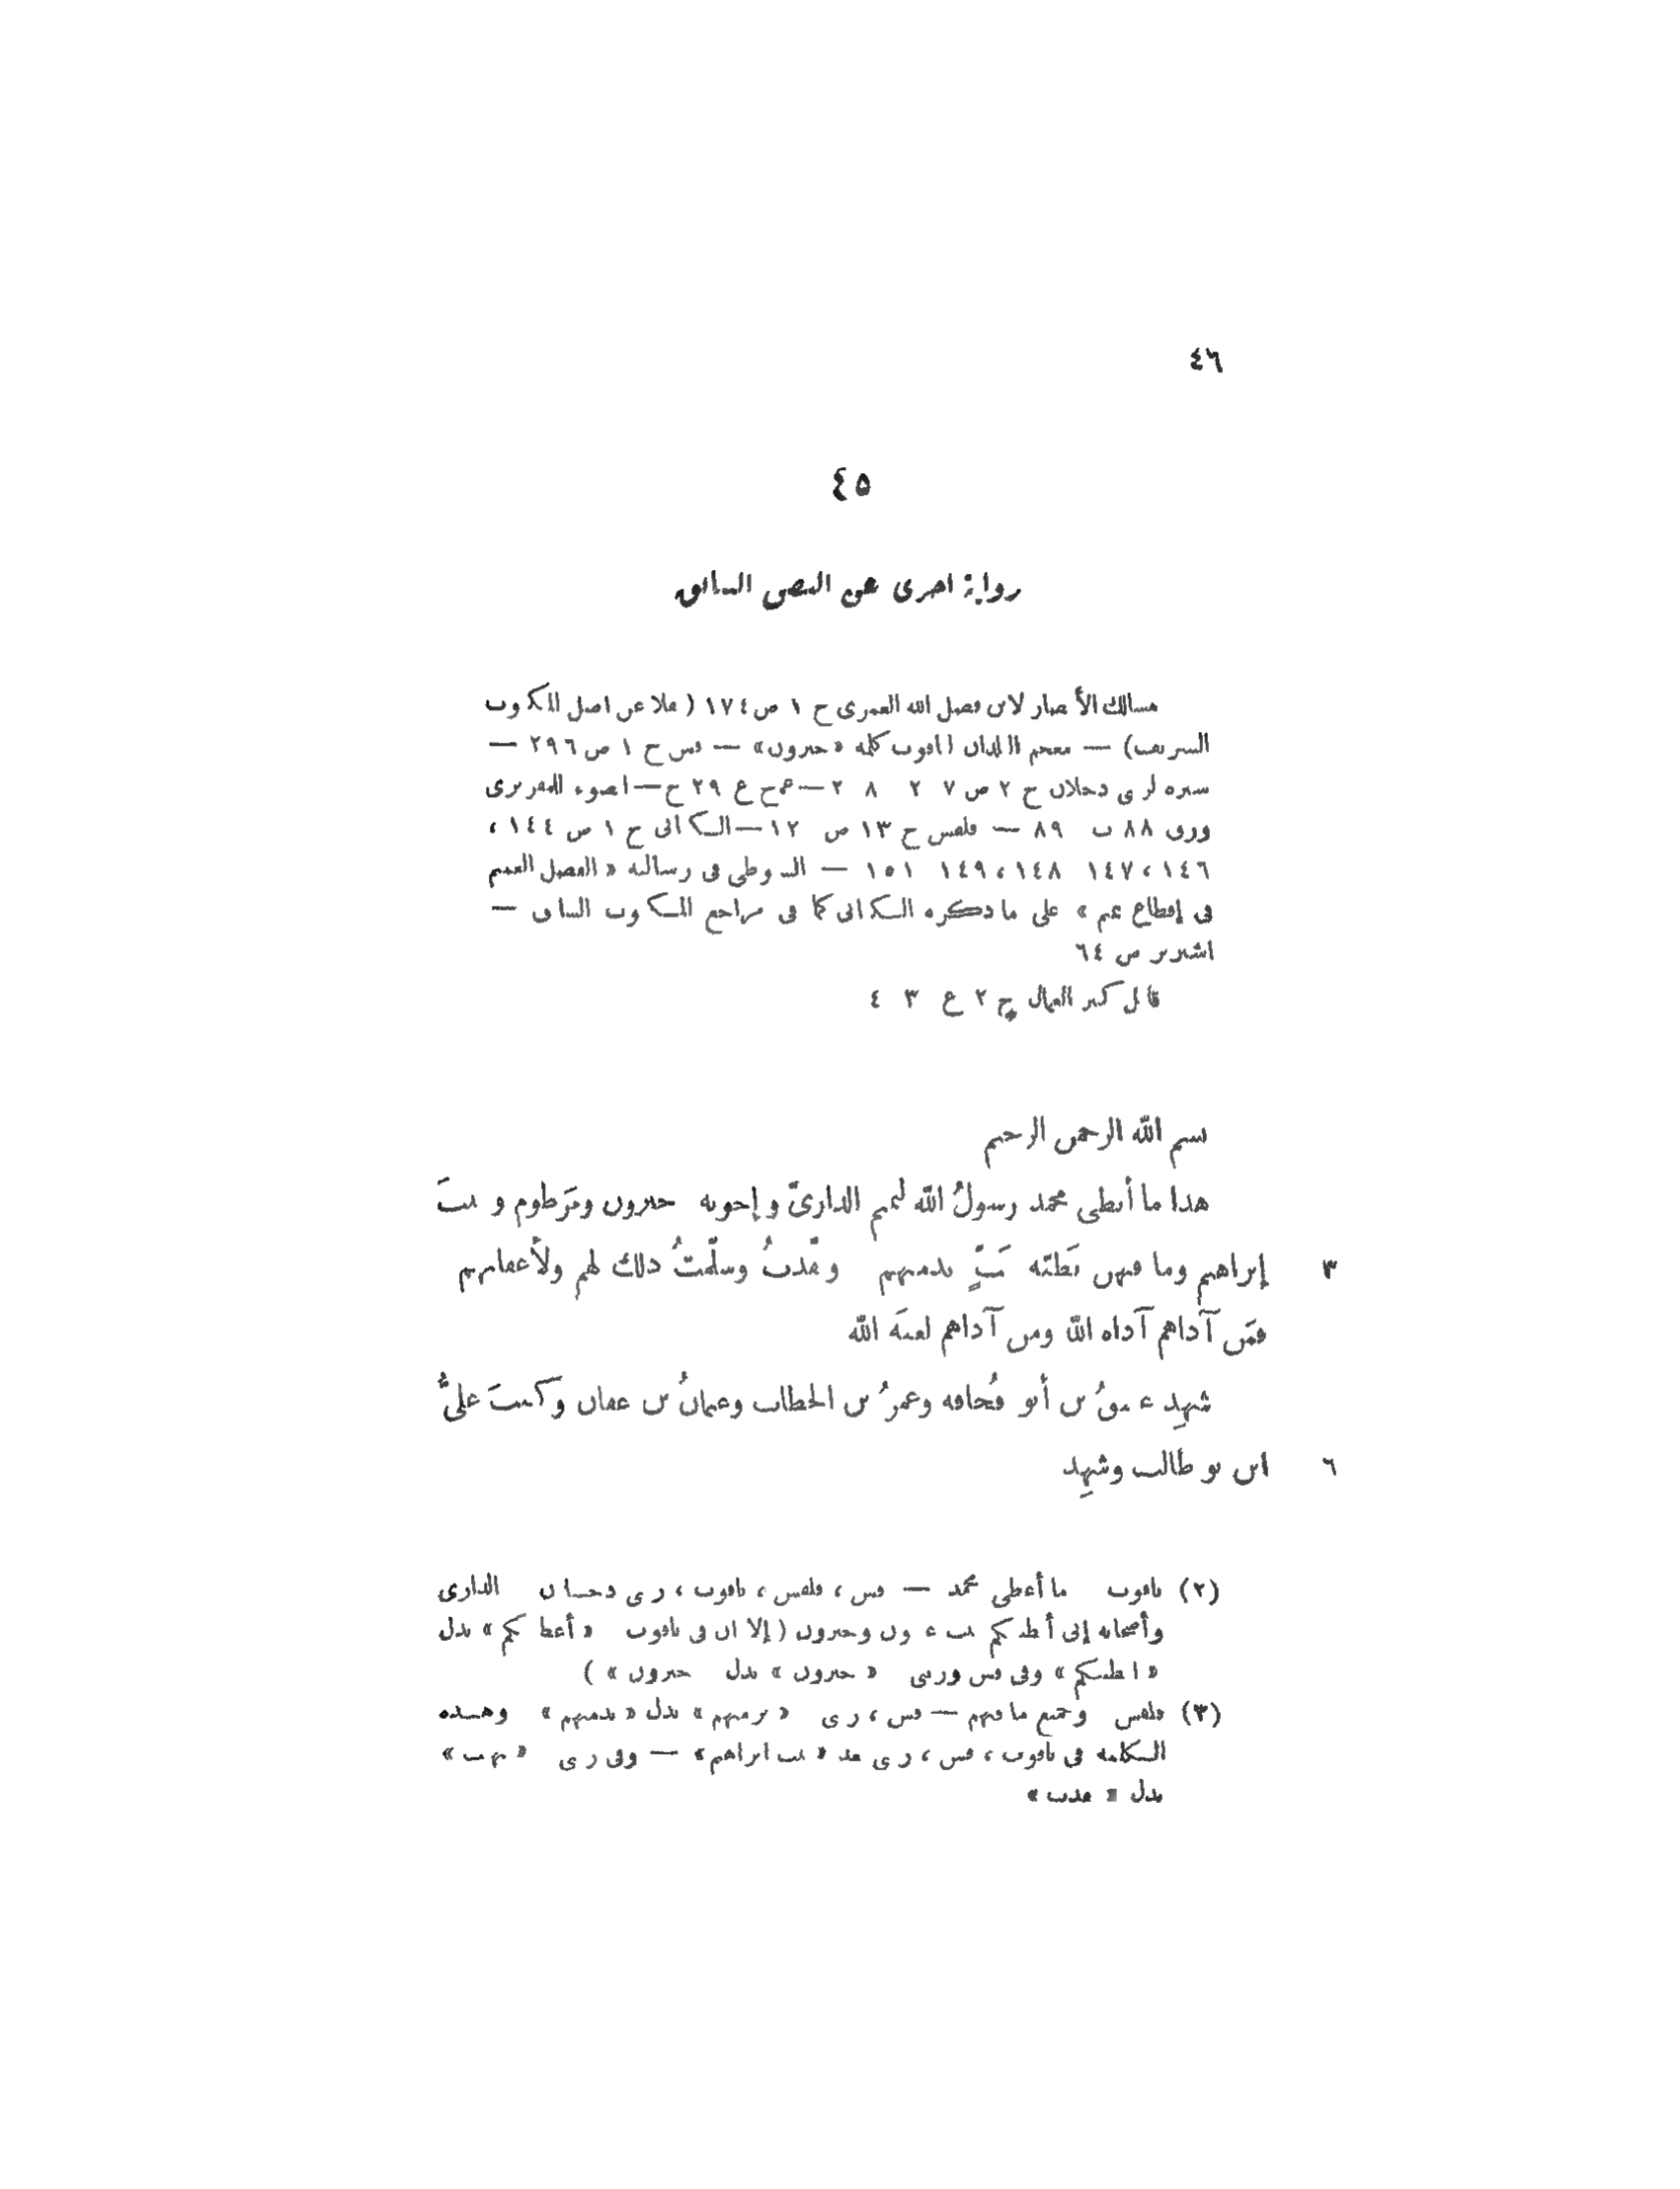 ٤٦
٤٥
رواية اخرى عن النص السابق
مسالك الأبصار لابن فضل الله العمرى ج ١ ص ١٧٤ ( نقلا عن اصل المكتوب
الشريف) — معجم البلدان لياقوت كلمة «حبرون» — قس ج ١ ص ٢٩٦ —
سيره لزينى دحلان ج ٢ ص ٧ ٢ ٨ ٢ — عمخ ع ٢٩ ج — الضوء للمقريزى
ورق ٨٨ ب ٨٩ — قلقس ج ١٣ ص ١٢ — الكتانى ج ١ ص ١٤٤ ،
١٤٦ ، ١٤٧ ١٤٨ ، ١٤٩ ١٥١ — السيوطى فى رسالته « الفضل العميم
فى إقطاع تميم » على ما ذكره الكتانى كما فى مراجع المكتوب السابق —
اشپرنبر ص ٦٤
قابل كنز العمال ج ٢ ع ٣ ٤
بسم الله الرحمن الرحيم
هذا ما أنطى محمد رسولُ الله لتميم الدارىّ وإخوته حبرون ومَرطوم وبيتَ
٣ إبراهيم وما فيهن نَطيّة بَتٍّ بذمتهم ونفّذتُ وسلّمتُ ذلك لهم ولأعقابهم
فمَن آذاهم آذاه الله ومن آذاهم لعنَه الله
شهِد عتيقُ بن أبو قُحافه وعمرُ بن الخطاب وعثمانُ بن عفان وكتبَ علىُّ
٦ ابن بو طالب وشهِد
(٢) ياقوت ما أعطى محمد — قس ، قلقس ، ياقوت ، زينى دحلان الدارى
وأصحابه إنى أنطيتكم بيت عينون وحبرون ( إلا ان فى ياقوت « أعطيتكم » بدل
« انطيتكم » وفى قس وزينى « حبرون » بدل حبرون » )
(٣) قلقس وجميع ما فيهم — قس ، زينى « برمتهم » بدل « بذمتهم » وهذه
الكلمة فى ياقوت ، قس ، زينى بعد « بيت ابراهيم » — وفى زينى
بدل « نفذت »